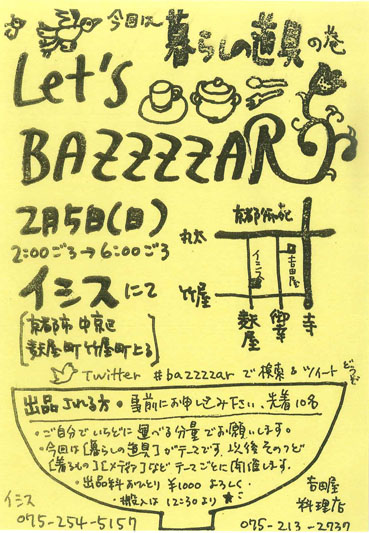 今回は 暮らしの道具の巻
Let's
BAZZZZAR
2月5日(日)
2:00ごろ→6:00ごろ
イシスにて
[京都市中京区
麩屋町竹屋町上る]
京都御苑
丸太
竹屋
イシス
吉田屋
麩屋
御幸
寺
Twitter #bazzzzar で検索&ツイート どうぞ
出品される方・事前にお申し込み下さい、先着10名
・ご自分でいちどに運べる分量でお願いします。
・今回は[暮らしの道具]がテーマです、以後そのつど
[着るもの][メディア]などテーマごとに開催します。
・出品料おひとり ¥1000 よろしく
・搬入は 12:30より ★
イシス
075-254-5157
吉田屋
料理店
075-213-2737